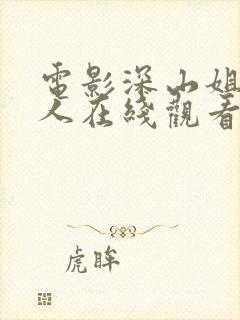 電影深山姐
人在线觀看
虎眸